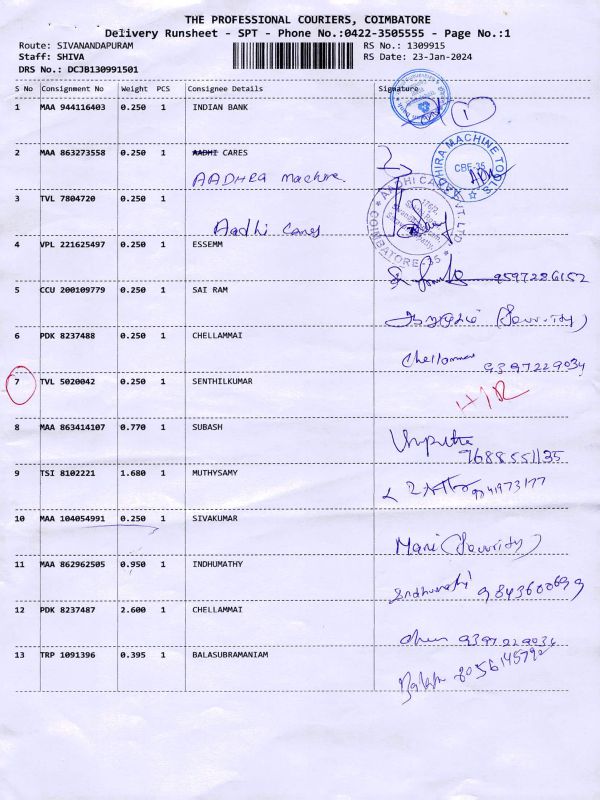 THE PROFESSIONAL COURIERS, COIMBATORE
Delivery Runsheet - SPT - Phone No.:0422-3505555 - Page No.:1
Route: SIVANANDAPURAM RS No.: 1309915
Staff: SHIVA RS Date: 23-Jan-2024
DRS No.: DCJB130991501
S No Consignment No Weight PCS Consignee Details Signature
1 MAA 944116403 0.250 1 INDIAN BANK
2 MAA 863273558 0.250 1 AADHI CARES
AADHRA Machine.
AADHIRA MACHINE TOOLS
CBE-35
3 TVL 7804720 0.250 1
Aadhi Cares
4 VPL 221625497 0.250 1 ESSEMM
9597286152
5 CCU 200109779 0.250 1 SAI RAM
(Security)
6 PDK 8237488 0.250 1 CHELLAMMAI
Chellammai 9397229034
7 TVL 5020042 0.250 1 SENTHILKUMAR
8 MAA 863414107 0.770 1 SUBASH
7688551135
9 TSI 8102221 1.680 1 MUTHYSAMY
10 MAA 104054991 0.250 1 SIVAKUMAR
Mani (Security)
11 MAA 862962505 0.950 1 INDHUMATHY
Indhumathi 9843600699
12 PDK 8237487 2.600 1 CHELLAMMAI
9397229034
13 TRP 1091396 0.395 1 BALASUBRAMANIAM
8056145792